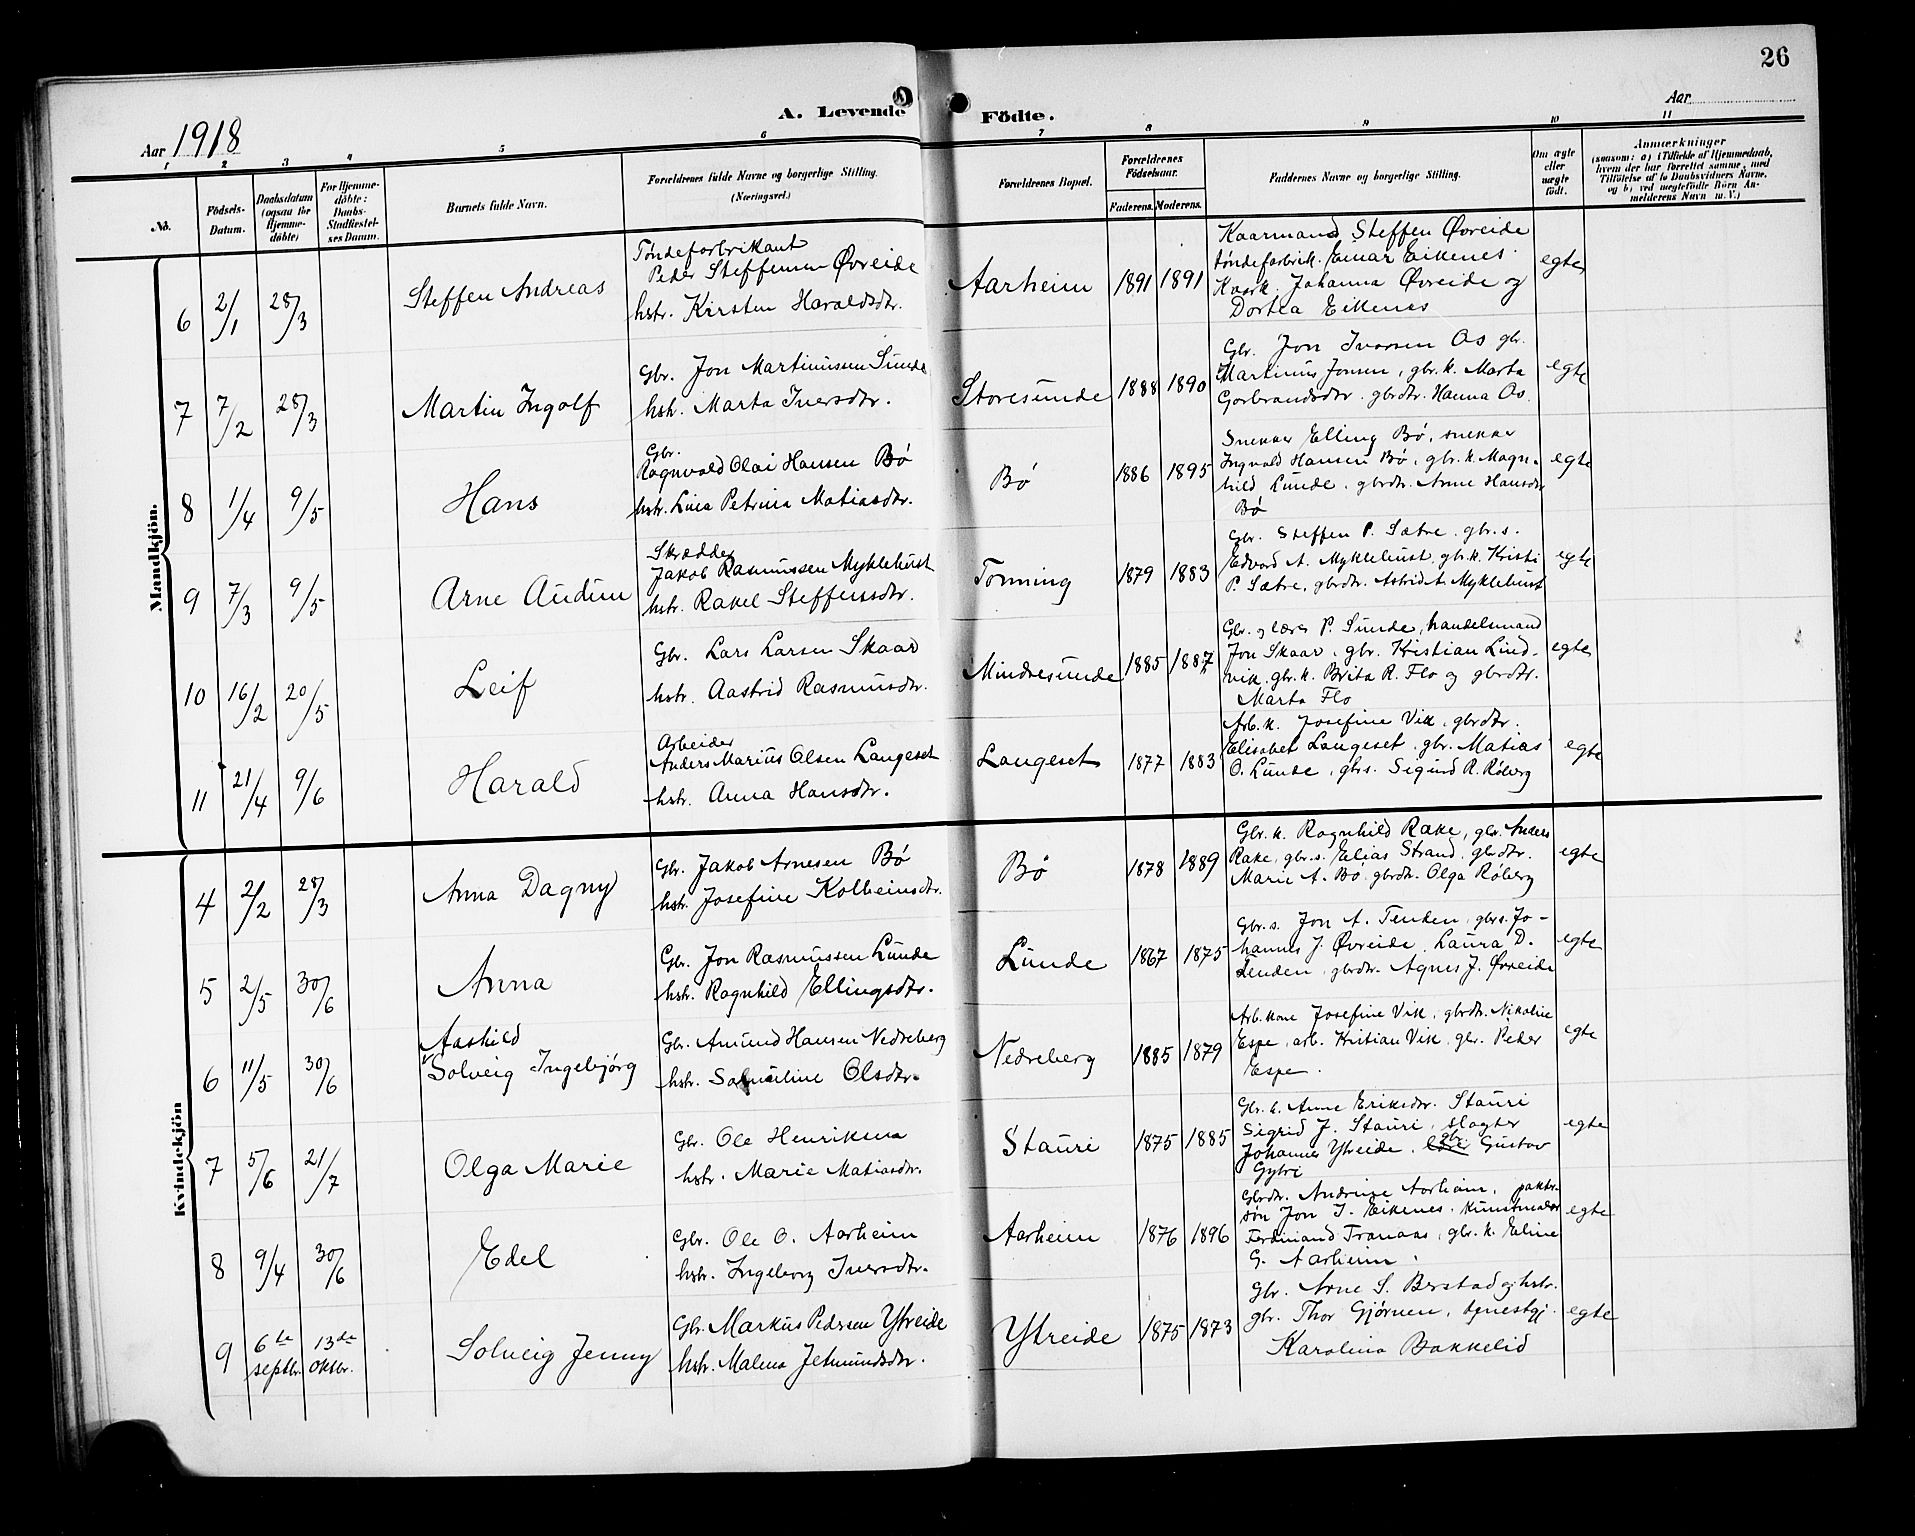 26
A. Levende Födte.
Aar 1918
Aar
1 2 3 4 5 6 7 8 9 10 11
No.
Födsels-Datum.
Daabsdatum (ogsaa for Hjemmedöbte)
For Hjemmedöbte: Daabs-Stadfæstelses Datum.
Barnets fulde Navn.
Forældrenes fulde Navne og borgerlige Stilling. (Næringsvei.)
Forældrenes Bopæl.
Forældrenes Födselsaar.
Faderens. Moderens.
Faddernes Navne og borgerlige Stilling.
Om ægte eller uægte födt.
Anmærkninger
(saasom: a) i Tilfælde af Hjemmedaab,
hvem der har forrettet samme, med
Tilföielse af to Daabsvidners Navne,
og b) ved uægtefödte Börn An-
melderens Navn m. V.)
Mandkjön.
6 2/1 28/3 Steffen Andreas
Tøndefabrikant
Peder Steffensen Øvreide
hstr. Kirsten Haraldsdtr.
Aarheim 1891 1891
Kaarmand Steffen Øvreide
tøndefabrik. Einar Eikenes
Kaark. Johanna Øvreide og
Dortea Eikenes
egte
7 7/2 28/3 Martin Ingolf
Gbr. Jon Martinussen Sunde
hstr. Marta Iversdtr.
Storesunde 1888 1890
Gbr. Jon Ivarsen Os gbr.
Martinus Jonsen, gbr. k. Marta
Gorbrandsdtr. gbrdtr. Hanna Os.
egte
8 1/4 9/5 Hans
Gbr.
Ragnvald Olai Hansen Bø
hstr. Lina Petrina Matiasdtr.
Bø 1886 1895
Snekker Elling Bø, snekker
Ingvald Hansen Bø, gbr. k. Magn-
hild Lunde, gbrdtr. Anne Hansdtr
Bø
egte
9 7/3 9/5 Arne Audun
Skrædder
Jakob Rasmussen Myklebust
hstr. Rakel Steffensdtr.
Tonning 1879 1883
Gbr. Steffen P. Sætre, gbr. s.
Edvard A. Myklebust, gbr. k. Kristi
P. Sætre, gbrdtr. Astrid A. Myklebust
egte
10 16/2 20/5 Leif
Gbr. Lars Larsen Skaar
hstr. Aastrid Rasmusdtr.
Mindresunde 1885 1887
Gbr. og lærer P. Sunde, handelsmand
Jon Skaar, gbr. Kristian Lind-
vik, gbr. k. Brita R. Flo og gbrdtr.
Marta Flo
egte
11 21/4 9/6 Harald
Arbeider
Anders Marius Olsen Langeset
hstr. Anna Hansdtr.
Langeset 1877 1883
Arb. k. Josefine Vik, gbrdtr.
Elisabet Langeset, gbr. Matias
O. Lunde, gbrs. Sigurd R. Røberg
egte
Kvindekjön
4 2/2 28/3 Anna Dagny
Gbr. Jakob Arnesen Bø
hstr. Josefine Kolbeinsdtr.
Bø 1878 1889
Gbr. k. Ragnhild Rake, gbr. Anders
Rake, gbr. s. Elias Strand, gbrdtr.
Marie A. Bø, gbrdtr. Olga Røberg
egte
5 2/5 30/6 Anna
Gbr. Jon Rasmussen Lunde
hstr. Ragnhild Ellingsdtr.
Lunde 1867 1875
Gbr. s. Jon A. Tenden, gbrs. Jo-
hannes J. Øvreide, Laura D.
Tenden, gbrdtr. Agnes J. Øvreide
egte
6 11/5 30/6 Aashild
Solveig Ingebjørg
Gbr. Amund Hansen Nedreberg
hstr. Samueline Olsdtr.
Nedreberg 1885 1879
Arb. kone Josefine Vik, gbrdtr. Nikoline
Espe, arb. Kristian Vik, gbr. Peder
Espe.
egte
7 5/6 21/7 Olga Marie
Gbr. Ole Henriksen
hstr. Marie Matiasdtr.
Stauri 1875 1885
Gbr. k. Anne Eriksdtr. Stauri
Sigrid J. Stauri, slagter
Johannes Ytreide, gbr. Gustav
Gytri
egte
8 9/4 30/6 Edel
Gbr. Ole O. Aarheim
hstr. Ingeborg Iversdtr.
Aarheim 1876 1896
Gbrdtr. Andrine Aarheim,
søn Jon J. Eikenes, kunstmaler
Ferdinand Tranaas, gbr. k. Eline
G. Aarheim.
egte
9 6te septbr. 13de oktbr. Solveig Jenny
Gbr. Markus Pedersen Ytreide
hstr. Malena Jetmundsdtr.
Ytreide 1875 1873
Gbr. Arne S. Berstad og hstr.
gbr. Thor Gjørven, tenestgj.
Karolina Bakkelid
egte